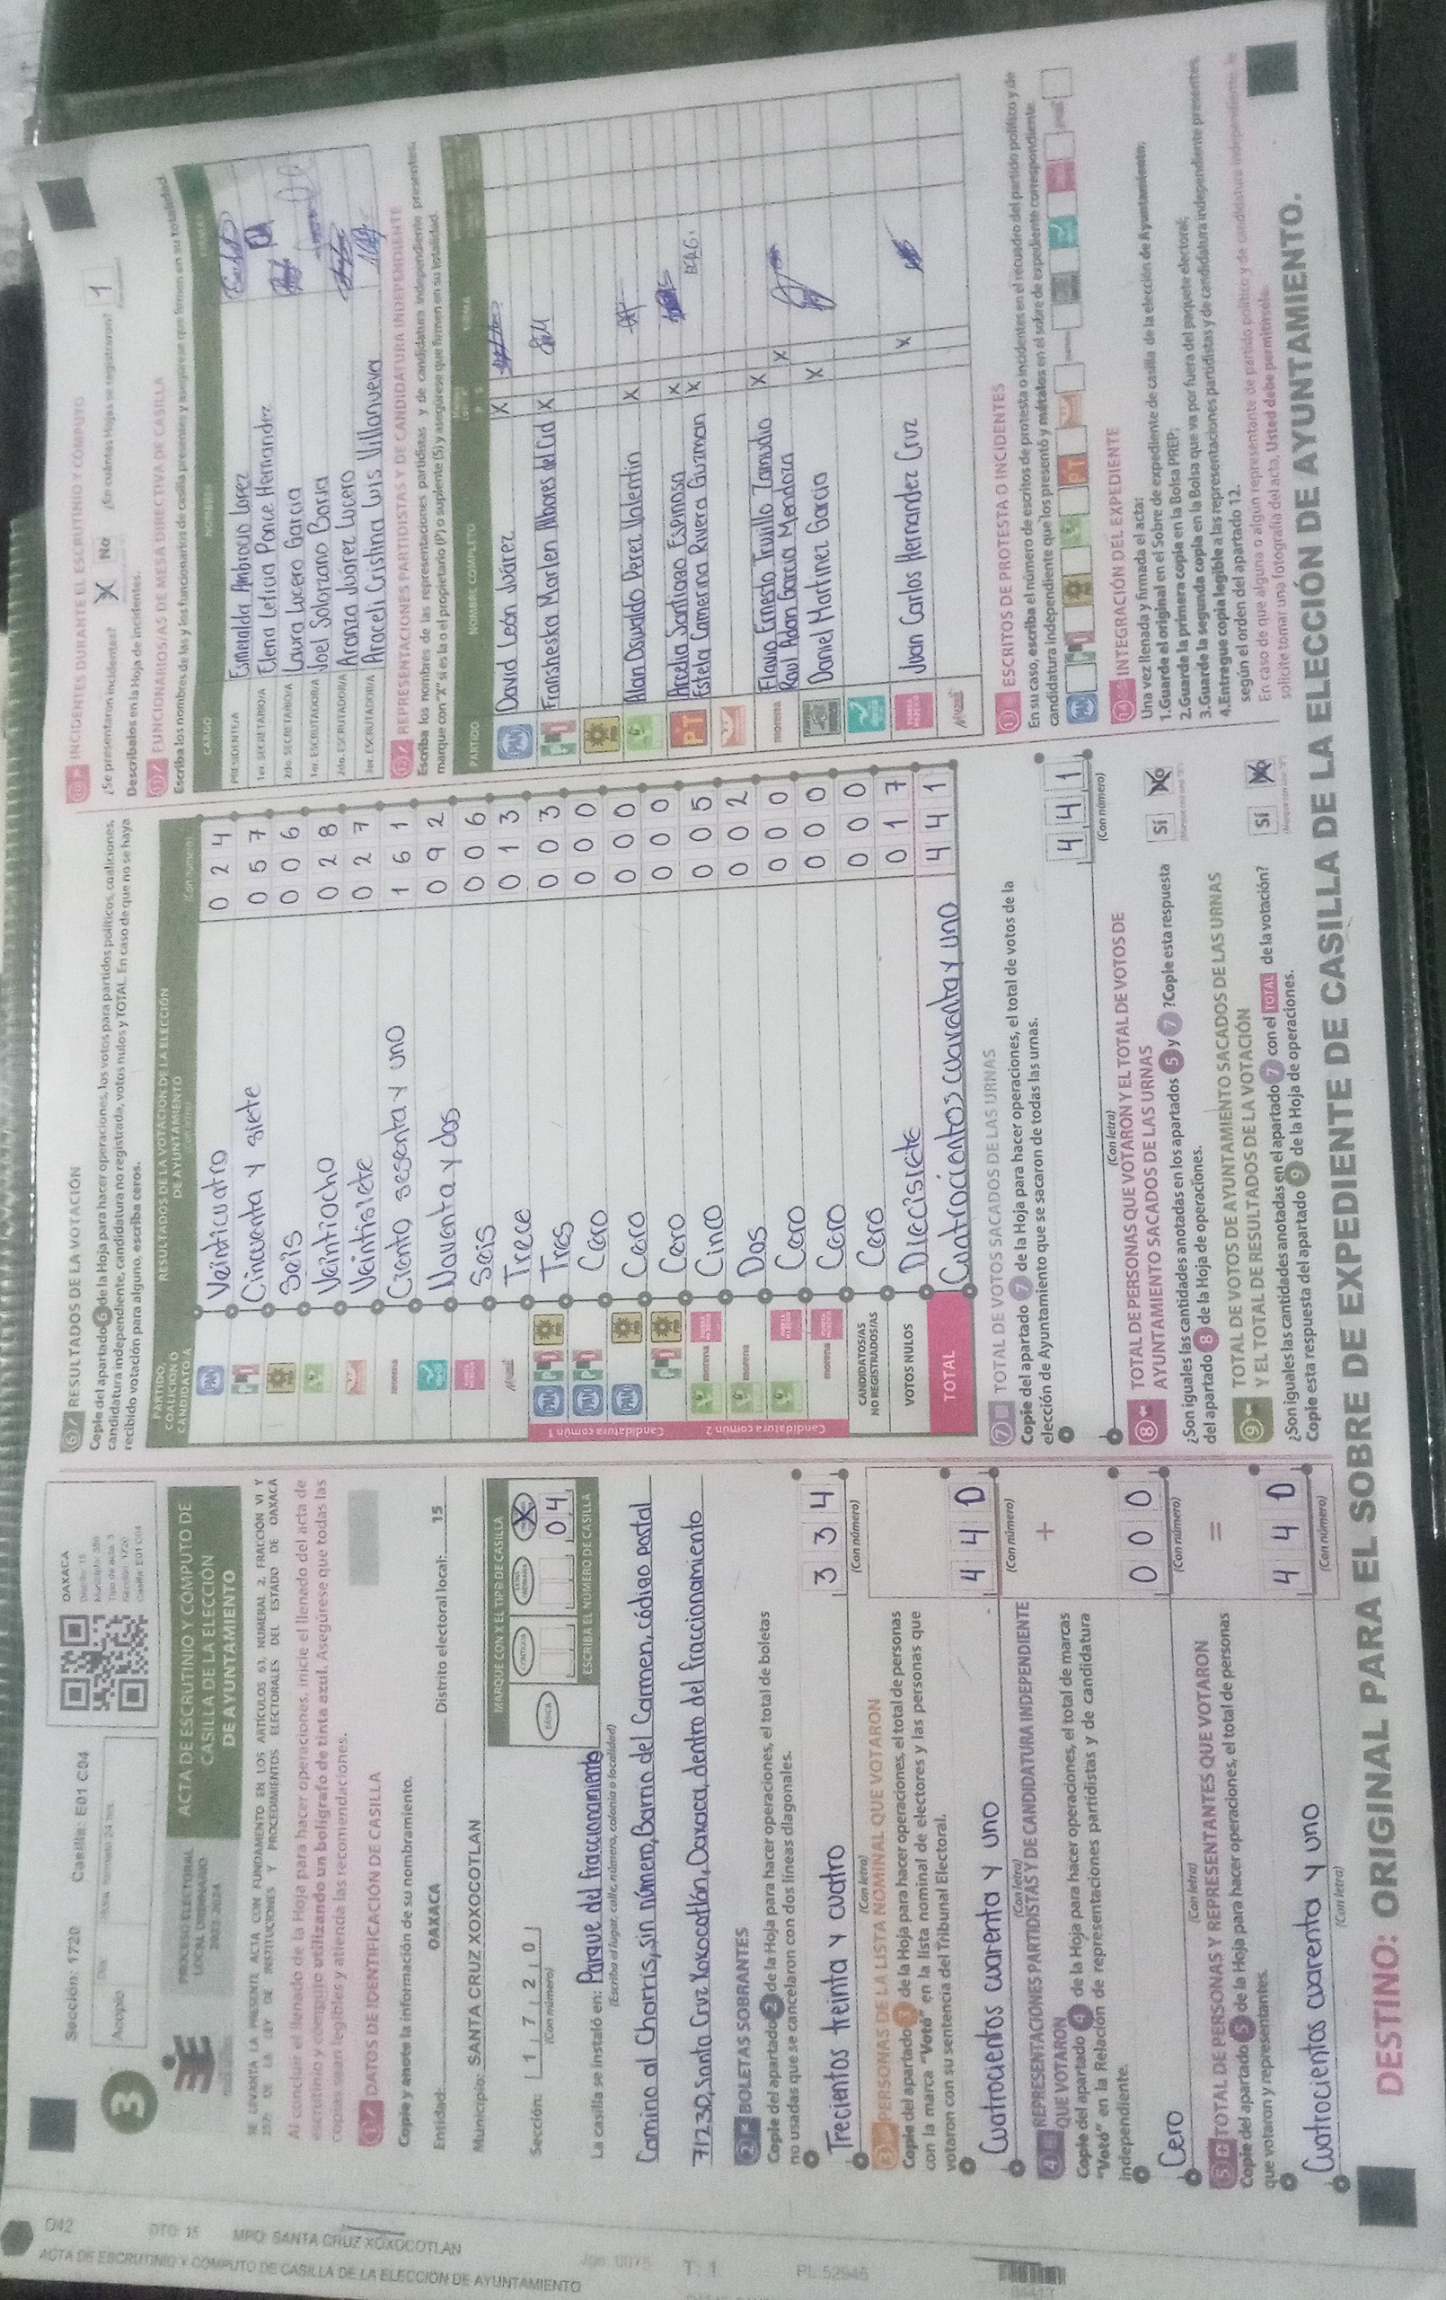 042
DTO: 15
MPO: SANTA CRUZ XOXOCOTLAN
ACTA DE ESCRUTINIO Y CÓMPUTO DE CASILLA DE LA ELECCIÓN DE AYUNTAMIENTO
T: 1
PL:52945
Sección: 1720 Casilla: E01 C04
3
Acopio
OAXACA
PROCESO ELECTORAL
LOCAL ORDINARIO
2023-2024
ACTA DE ESCRUTINIO Y CÓMPUTO DE
CASILLA DE LA ELECCIÓN
DE AYUNTAMIENTO
SE LEVANTA LA PRESENTE ACTA CON FUNDAMENTO EN LOS ARTÍCULOS 63, NUMERAL 2, FRACCIÓN VI Y
DE LA LEY DE INSTITUCIONES Y PROCEDIMIENTOS ELECTORALES DEL ESTADO DE OAXACA
Al concluir el llenado de la Hoja para hacer operaciones, inicie el llenado del acta de
escrutinio y cómputo utilizando un bolígrafo de tinta azul. Asegúrese que todas las
copias sean legibles y atienda las recomendaciones.
1 DATOS DE IDENTIFICACIÓN DE CASILLA
Copie y anote la información de su nombramiento.
Entidad: OAXACA Distrito electoral local: 15
Municipio: SANTA CRUZ XOXOCOTLAN
MARQUE CON X EL TIPO DE CASILLA
Sección: 1 7 2 0
(Con número)
BÁSICA
04
ESCRIBA EL NÚMERO DE CASILLA
La casilla se instaló en: Parque del fraccionamiento
(Escriba el lugar, calle, número, colonia o localidad)
Camino al Chorris, sin número, Barrio del Carmen, código postal
71230, Santa Cruz Xoxocotlán, Oaxaca, dentro del fraccionamiento
2 BOLETAS SOBRANTES
Copie del apartado 2 de la Hoja para hacer operaciones, el total de boletas
no usadas que se cancelaron con dos líneas diagonales.
Trecientos treinta y cuatro 3 3 4
(Con letra) (Con número)
3 PERSONAS DE LA LISTA NOMINAL QUE VOTARON
Copie del apartado 3 de la Hoja para hacer operaciones, el total de personas
con la marca "Votó" en la lista nominal de electores y las personas que
votaron con su sentencia del Tribunal Electoral.
Cuatrocientos cuarenta y uno 4 4 0
(Con letra) (Con número)
+
4 REPRESENTACIONES PARTIDISTAS Y DE CANDIDATURA INDEPENDIENTE
QUE VOTARON
Copie del apartado 4 de la Hoja para hacer operaciones, el total de marcas
"Votó" en la Relación de representaciones partidistas y de candidatura
independiente.
Cero 0 0 0
(Con letra) (Con número)
=
5 TOTAL DE PERSONAS Y REPRESENTANTES QUE VOTARON
Copie del apartado 5 de la Hoja para hacer operaciones, el total de personas
que votaron y representantes.
Cuatrocientos cuarenta y uno 4 4 0
(Con letra) (Con número)
6 RESULTADOS DE LA VOTACIÓN
Copie del apartado 6 de la Hoja para hacer operaciones, los votos para partidos políticos, coaliciones,
candidatura independiente, candidatura no registrada, votos nulos y TOTAL. En caso de que no se haya
recibido votación para alguno, escriba ceros.
PARTIDO,
COALICIÓN O
CANDIDATO/A
RESULTADOS DE LA VOTACIÓN DE LA ELECCIÓN
DE AYUNTAMIENTO
PAN Veinticuatro 0 2 4
Cincuenta y siete 0 5 7
Seis 0 0 6
Veintiocho 0 2 8
Veintisiete 0 2 7
morena Ciento sesenta y uno 1 6 1
Noventa y dos 0 9 2
Seis 0 0 6
Trece 0 1 3
Candidatura común 1
PAN Tres 0 0 3
PAN Cero 0 0 0
PAN Cero 0 0 0
Cero 0 0 0
Candidatura común 2
morena Cinco 0 0 5
morena Dos 0 0 2
Cero 0 0 0
morena Cero 0 0 0
CANDIDATOS/AS
NO REGISTRADOS/AS Cero 0 0 0
VOTOS NULOS Diecisiete 0 1 7
TOTAL Cuatrocientos cuarenta y uno 4 4 1
7 TOTAL DE VOTOS SACADOS DE LAS URNAS
Copie del apartado 7 de la Hoja para hacer operaciones, el total de votos de la
elección de Ayuntamiento que se sacaron de todas las urnas.
4 4 1
(Con letra) (Con número)
8 TOTAL DE PERSONAS QUE VOTARON Y EL TOTAL DE VOTOS DE
AYUNTAMIENTO SACADOS DE LAS URNAS
¿Son iguales las cantidades anotadas en los apartados 5 y 7 ?Copie esta respuesta
del apartado 8 de la Hoja de operaciones.
Sí No
9 TOTAL DE VOTOS DE AYUNTAMIENTO SACADOS DE LAS URNAS
Y EL TOTAL DE RESULTADOS DE LA VOTACIÓN
¿Son iguales las cantidades anotadas en el apartado 7 con el TOTAL de la votación?
Copie esta respuesta del apartado 9 de la Hoja de operaciones.
Sí No
10 INCIDENTES DURANTE EL ESCRUTINIO Y CÓMPUTO
¿Se presentaron incidentes? X No ¿En cuántas Hojas se registraron? 1
Descríbalos en la Hoja de incidentes.
11 FUNCIONARIOS/AS DE MESA DIRECTIVA DE CASILLA
Escriba los nombres de las y los funcionarios de casilla presentes y asegúrese que firmen en su totalidad
CARGO NOMBRES
PRESIDENTE/A Esmeralda Ambrocio Lopez
1er. SECRETARIO/A Elena Leticia Ponce Hernandez
2do. SECRETARIO/A Laura Lucero Garcia
1er. ESCRUTADOR/A Joel Solorzano Borja
2do. ESCRUTADOR/A Aranza Juarez Lucero
3er. ESCRUTADOR/A Araceli Cristina Luis Villanueva
12 REPRESENTACIONES PARTIDISTAS Y DE CANDIDATURA INDEPENDIENTE
Escriba los nombres de las representaciones partidistas y de candidatura independiente presentes,
marque con "X" si es la o el propietario (P) o suplente (S) y asegúrese que firmen en su totalidad.
PARTIDO NOMBRE COMPLETO P S FIRMA
PAN David León Juárez X
Fransheska Marlen Albores del Cid X
Alan Oswaldo Perez Valentin X
PT Arcelia Santiago Espinosa X
Estela Camerina Rivera Guzman X
morena Flavio Ernesto Trujillo Zamudio X
Raul Adan Garcia Mendoza X
Daniel Martinez Garcia X
Juan Carlos Hernandez Cruz X
13 ESCRITOS DE PROTESTA O INCIDENTES
En su caso, escriba el número de escritos de protesta o incidentes en el recuadro del partido político y de
candidatura independiente que los presentó y métalos en el sobre de expediente correspondiente.
14 INTEGRACIÓN DEL EXPEDIENTE
Una vez llenada y firmada el acta:
1.Guarde el original en el Sobre de expediente de casilla de la elección de Ayuntamiento;
2.Guarde la primera copia en la Bolsa PREP;
3.Guarde la segunda copia en la Bolsa que va por fuera del paquete electoral;
4.Entregue copia legible a las representaciones partidistas y de candidatura independiente presentes,
según el orden del apartado 12.
En caso de que alguna o algún representante de partido político y de candidatura independiente le
solicite tomar una fotografía del acta, Usted debe permitírselo.
DESTINO: ORIGINAL PARA EL SOBRE DE EXPEDIENTE DE CASILLA DE LA ELECCIÓN DE AYUNTAMIENTO.